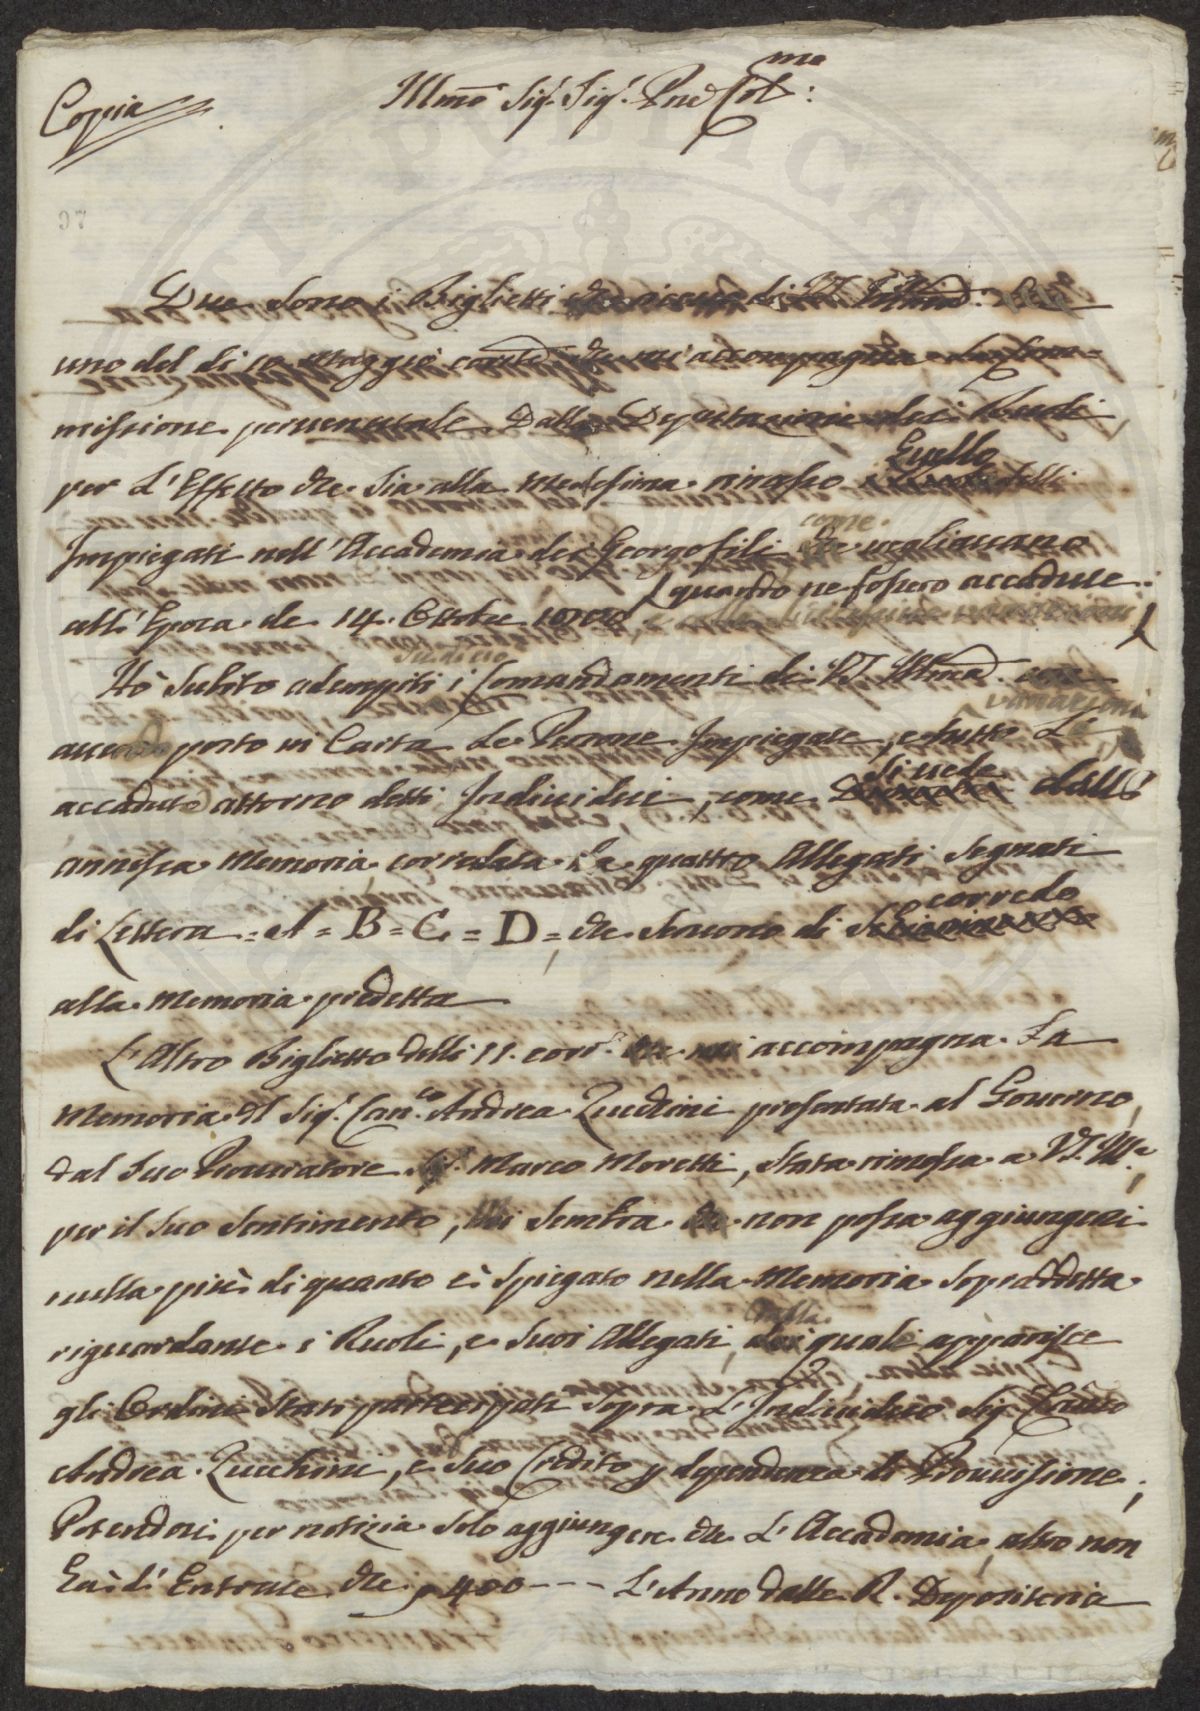 Copia
Illmo Sig. Sig. Pne Col.mo
97
Due sono i Biglietti
uno del dì 10 maggio corr.te che mi accompagna
missione pervenutale Dalla Deputazione dei Ruoli
per L'Effetto che sia alla medesima rimesso Quello delli
Impiegati nell'Accademia dei Georgofili come vegliavano
all'Epoca de 14. Ottobre 1800 quando ne fossero accadute
Hò Subito adempiti i Comandamenti di VS. Illma con
variazioni
posto in Carta Le Persone Impiegate, e tutto Le
accadute attorno detti Individui, come si vede dalla
annessa Memoria corredata da quattro Allegati Segnati
di Lettera = A = B = C = D = che servono di corredo
alla Memoria predetta
L'Altro Biglietto delli 11. corr. che mi accompagna La
Memoria del Sig. Can.co Andrea Zucchini presentata al Governo
dal Suo Procuratore Marco Moretti, Stata rimessa a VS. Ill.
per il Suo Sentimento, Mi Sembra che non possa aggiungersi
nulla più di quanto è Spiegato nella Memoria Sopraddetta
riguardante i Ruoli, e Suoi Allegati, dalla quale apparisce
gli Ordini Stati partecipati Sopra L'Individuo Sig. Can.co
Andrea Zucchini, e Suo Credito p dependenza di Provvisione;
Potendosi per notizia Solo aggiungere che L'Accademia altro non
hà d'Entrate che p 400 --- L'Anno dalla R. Depositeria